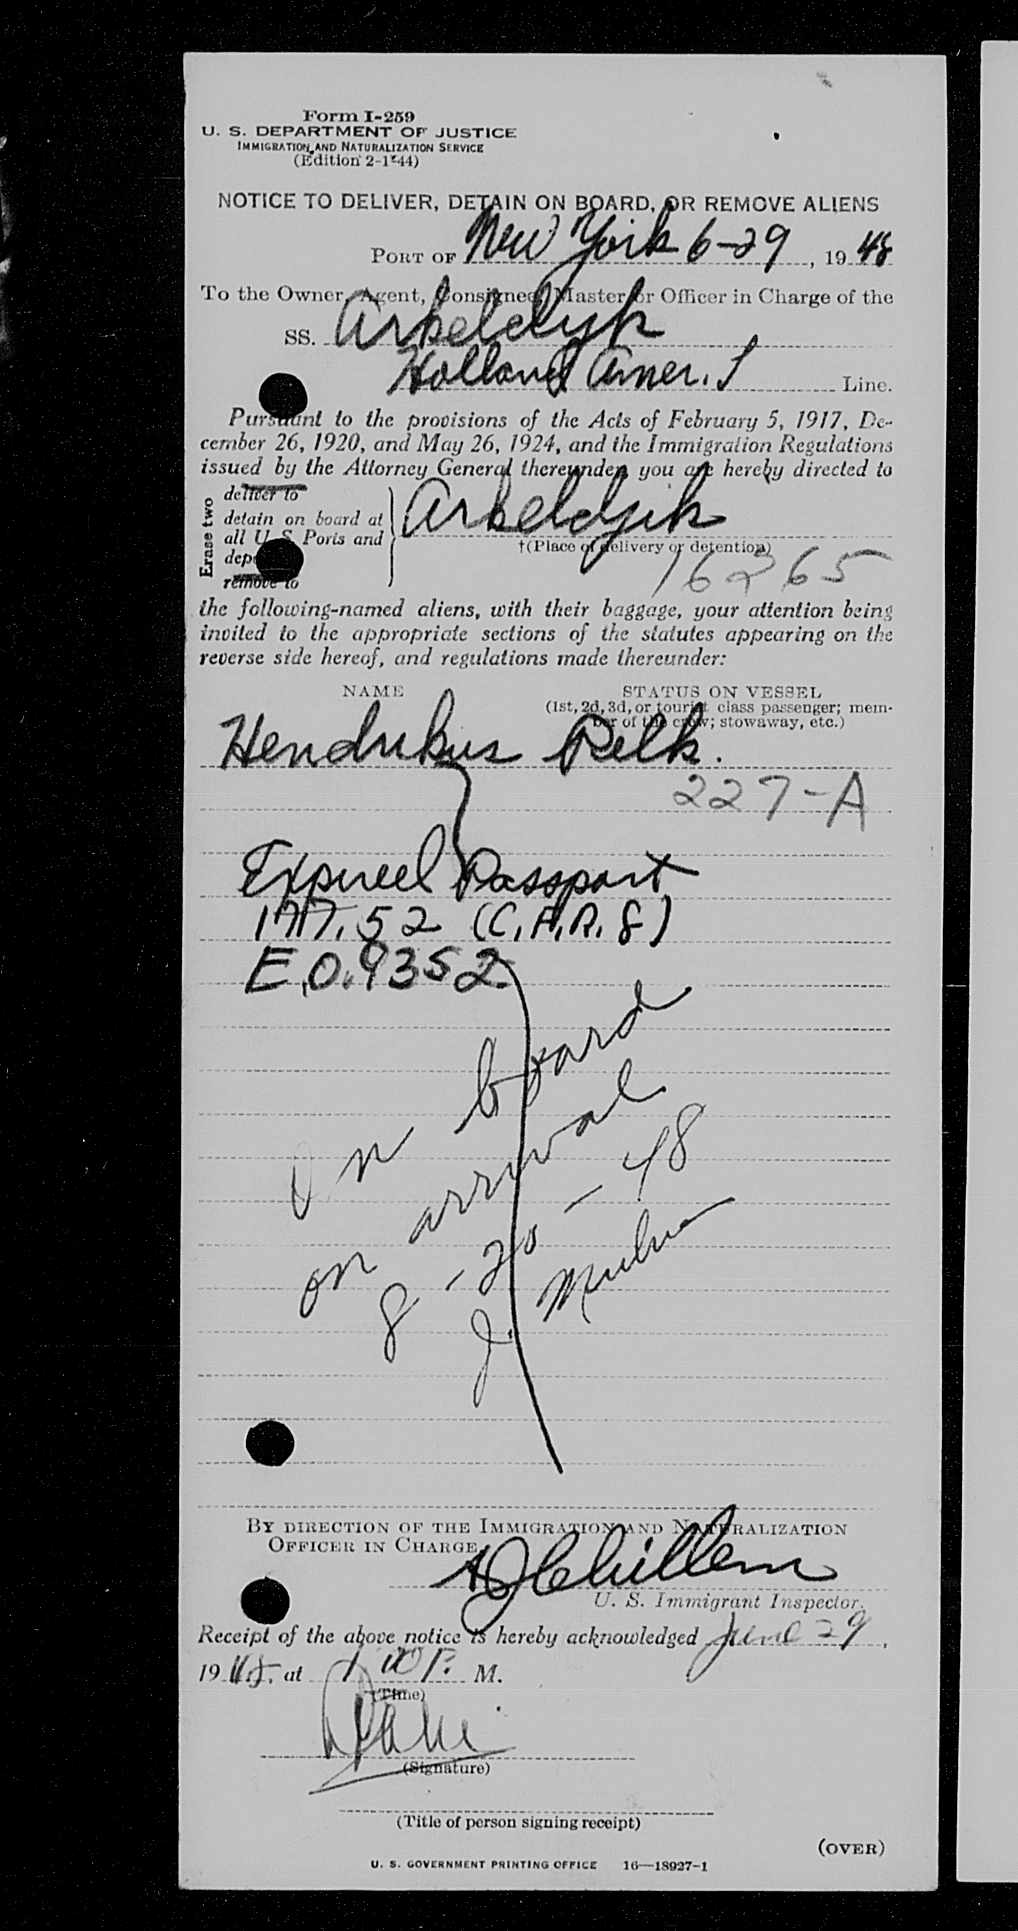 Form I-259
U. S. DEPARTMENT OF JUSTICE
IMMIGRATION AND NATURALIZATION SERVICE
(Edition 2-1-44)
NOTICE TO DELIVER, DETAIN ON BOARD, OR REMOVE ALIENS
PORT OF New York 6-29, 1948
To the Owner, Agent, Consignee, Master or Officer in Charge of the
SS. Arkeldyk
Holland Amer. Line.
Pursuant to the provisions of the Acts of February 5, 1917, De-
cember 26, 1920, and May 26, 1924, and the Immigration Regulations
issued by the Attorney General thereunder, you are hereby directed to
Erase two
deliver to
detain on board at
all U. S. Ports and
remove to
Arkeldyk
†(Place of delivery or detention)
16265
the following-named aliens, with their baggage, your attention being
invited to the appropriate sections of the statutes appearing on the
reverse side hereof, and regulations made thereunder:
NAME
STATUS ON VESSEL
(1st, 2d, 3d, or tourist class passenger; mem-
ber of the crew; stowaway, etc.)
Hendrikus Pelk.
227-A
Expired Passport
177.52 (C.F.R. 8)
E.O. 9352
On board
on arrival
8-20-48
J.
BY DIRECTION OF THE IMMIGRATION AND NATURALIZATION
OFFICER IN CHARGE
U. S. Immigrant Inspector.
Receipt of the above notice is hereby acknowledged June 29,
1948, at P. M.
(Time)
(Signature)
(Title of person signing receipt)
(OVER)
U. S. GOVERNMENT PRINTING OFFICE 16—18927-1